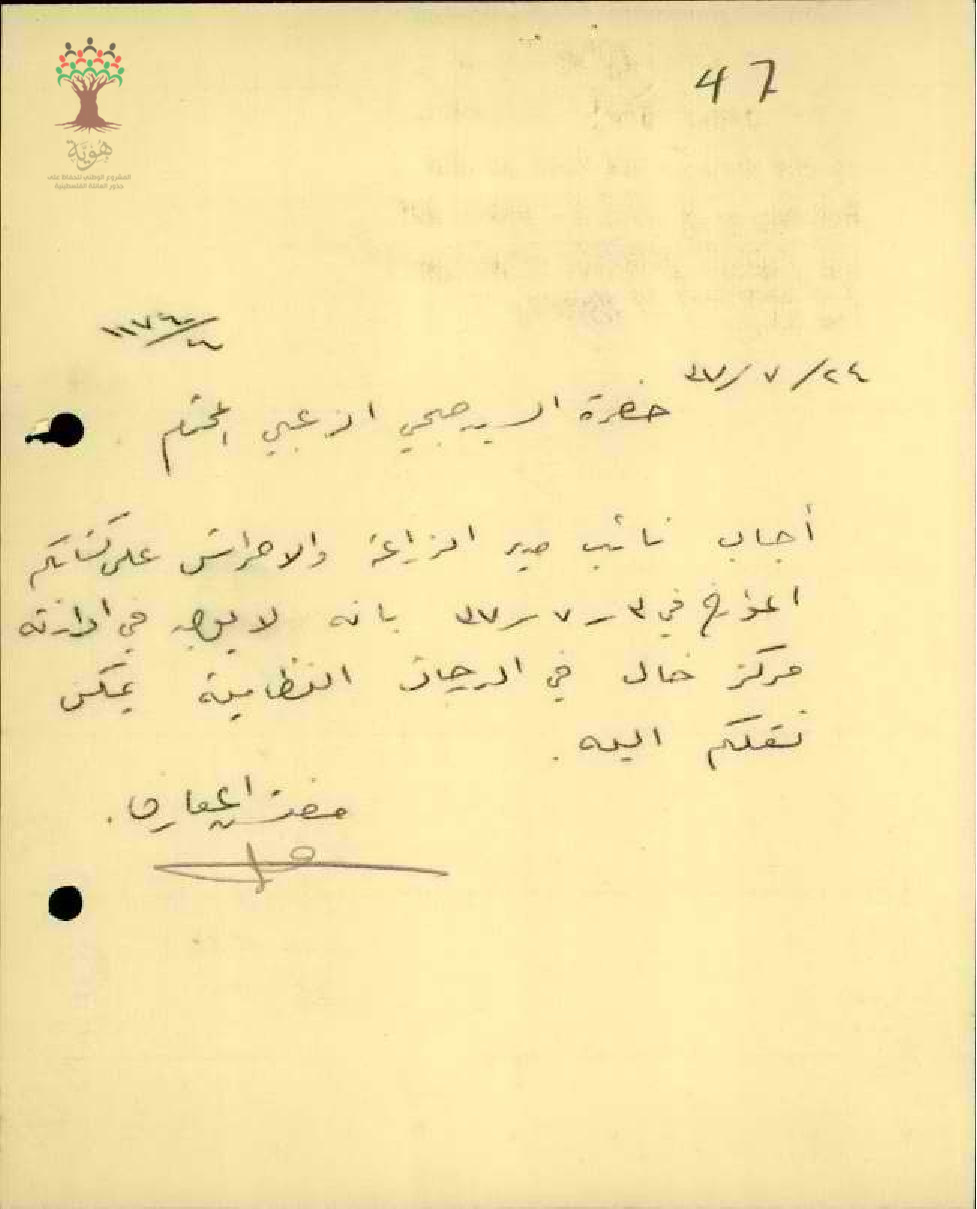 47
هوية
المشروع الوطني للحفاظ على
جذور العائلة الفلسطينية
٢٤/٧/٣٧
حضرة السيد صبحي الزعبي المحترم
أجاب نائب مدير الزراعة والاحراش على كتابكم
المؤرخ في ٣-٧-٣٧ بانه لا يوجد في ادارته
مركز خال في الدرجات النظامية يمكن
نقلكم اليه.
مفتش المعارف.